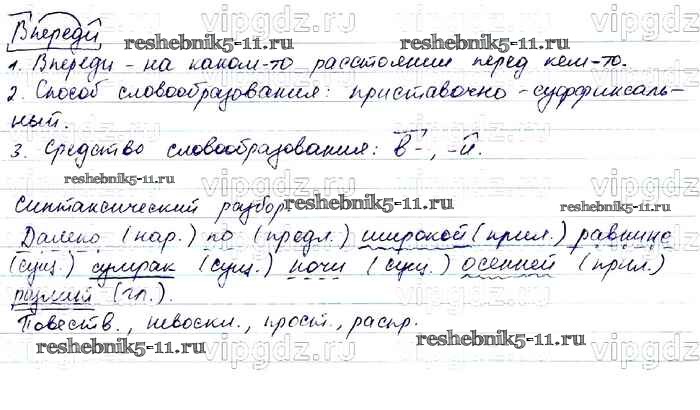 Впереди
1. Впереди - на каком-то расстоянии перед кем-то.
2. Способ словообразования: приставочно-суффиксаль-
ный.
3. Средство словообразования: в-, -и.
Синтаксический разбор.
Далеко (нар.) по (предл.) широкой (прил.) равнине
(сущ.) сумрак (сущ.) ночи (сущ.) осенней (прил.)
разлит (гл.).
Повеств., невоскл., прост., распр.
reshebnik5-11.ru
reshebnik5-11.ru
reshebnik5-11.ru
reshebnik5-11.ru
reshebnik5-11.ru
reshebnik5-11.ru
reshebnik5-11.ru
vipgdz.ru
vipgdz.ru
vipgdz.ru
vipgdz.ru